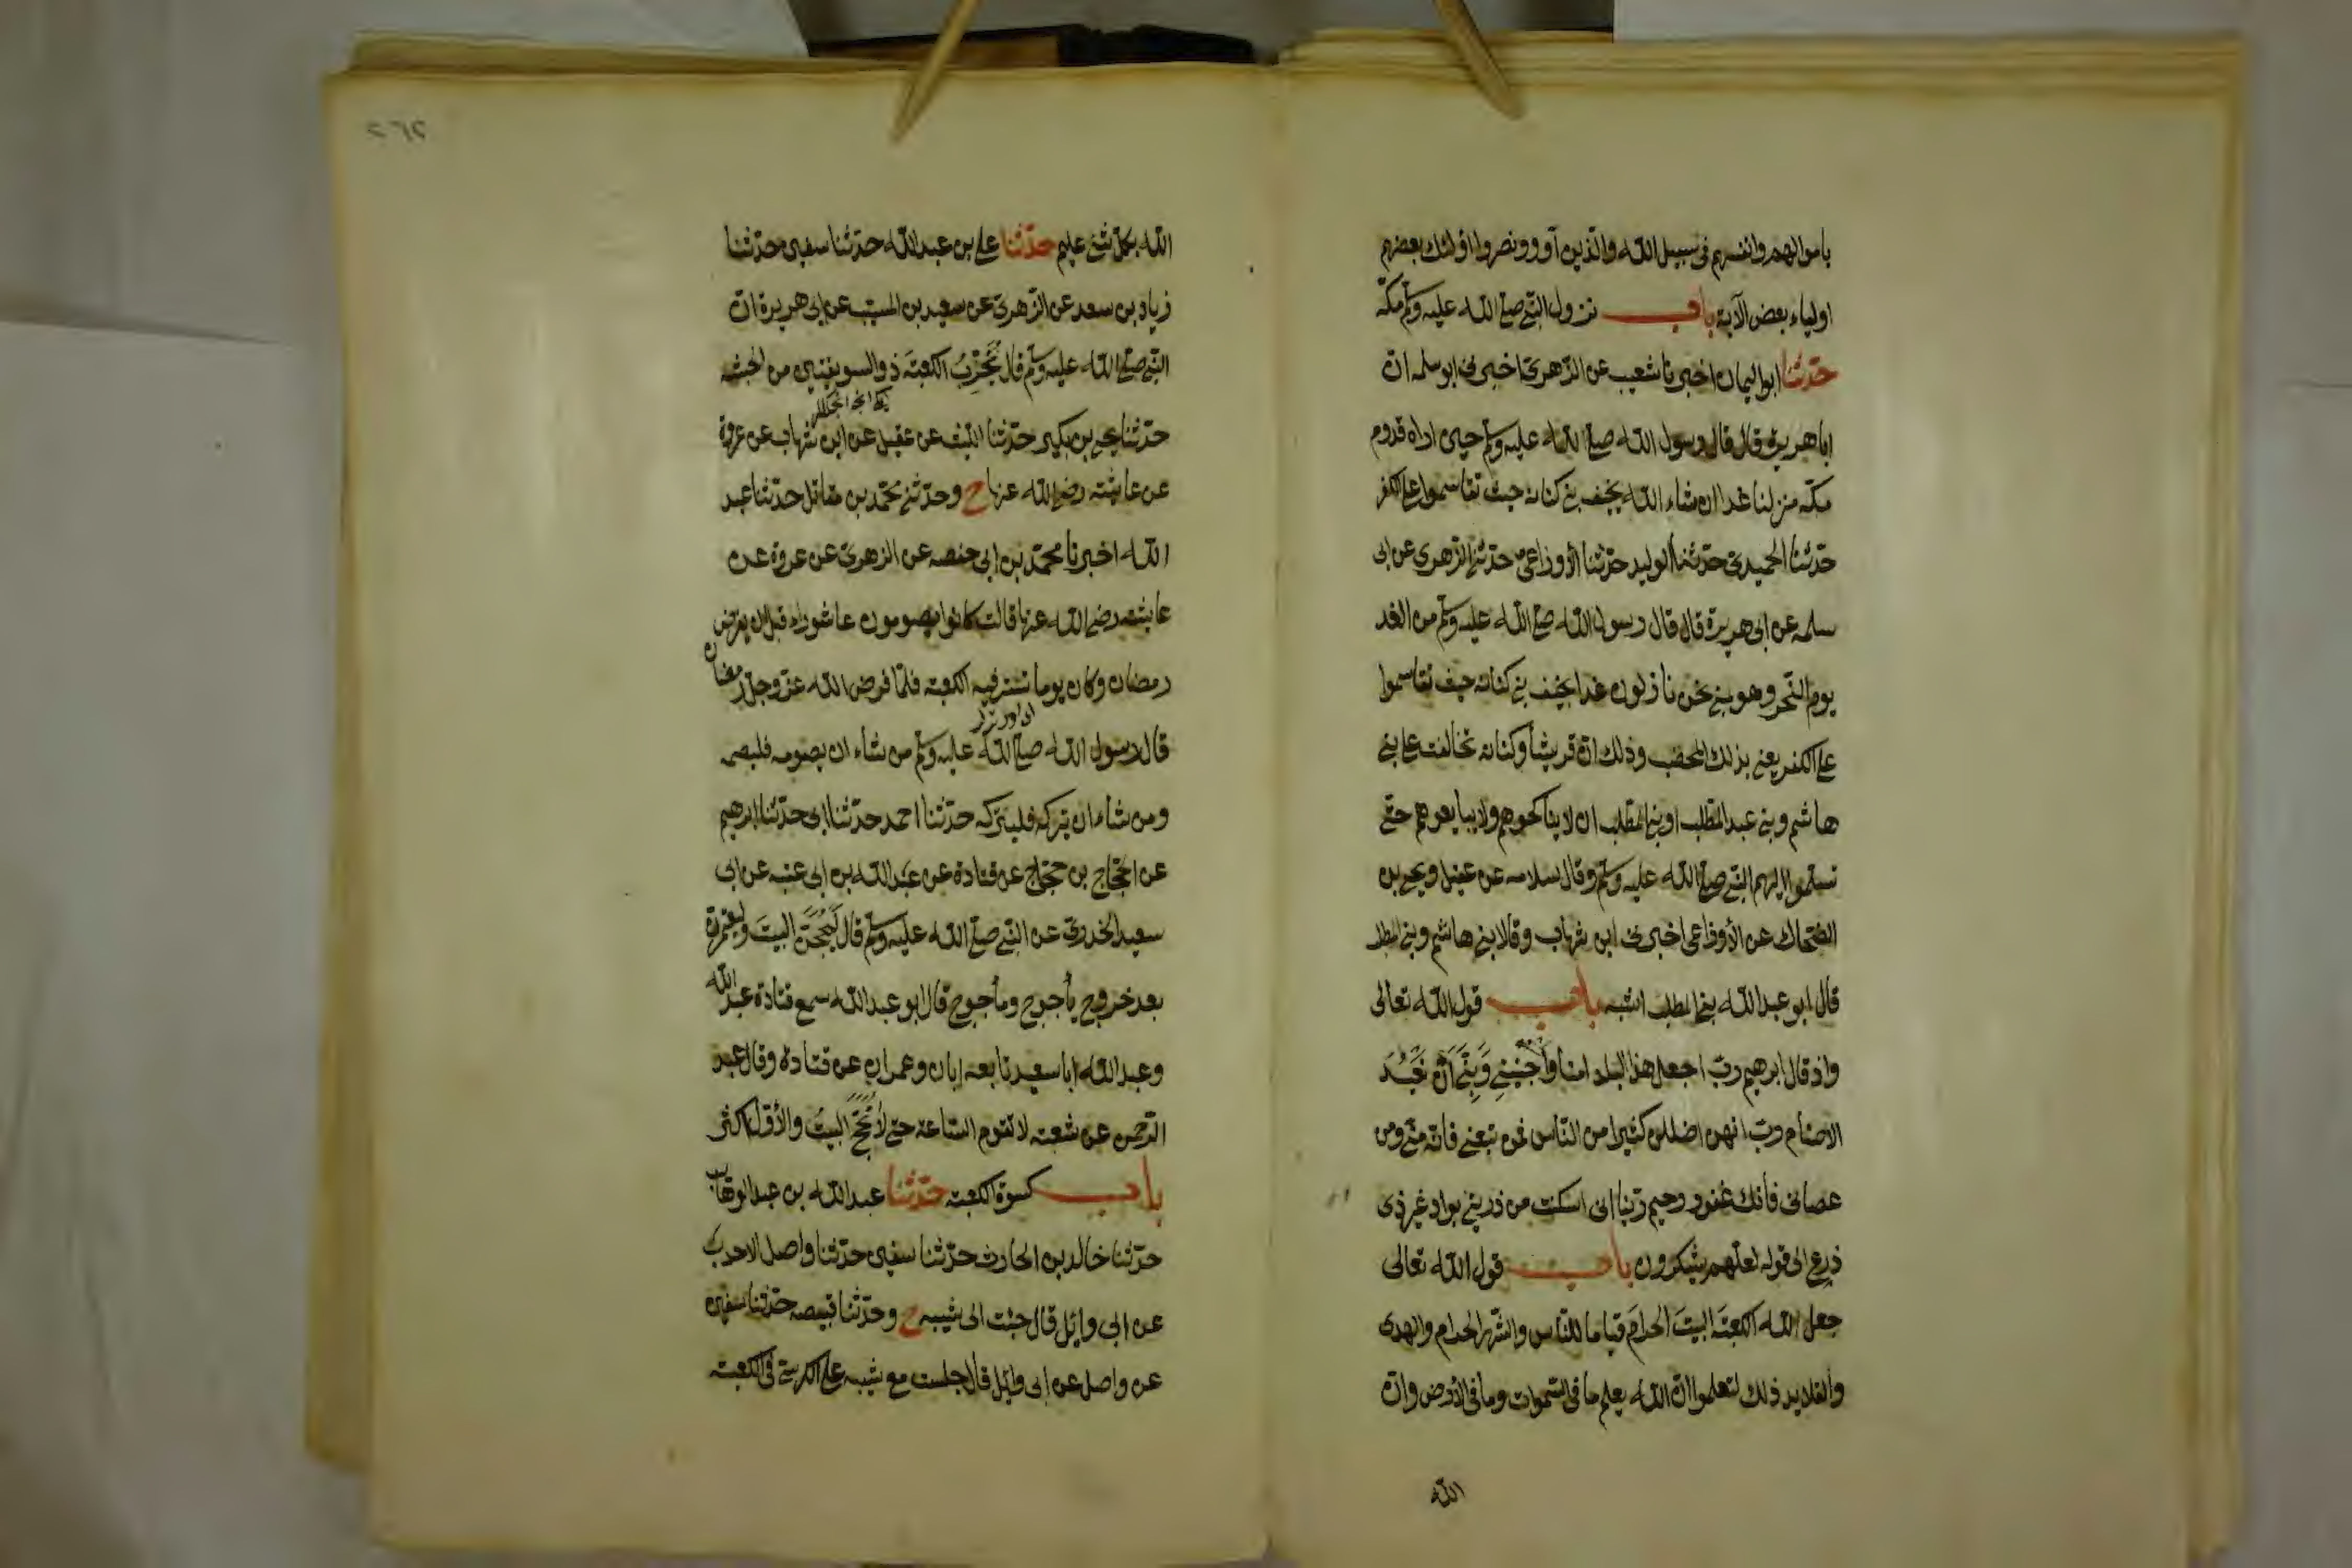 باموالهم وانفسهم فى سبيل الله والذين آووا ونصروا اولئك بعضهم
اولياء بعض الآية باب نزول النبى صلى الله عليه وسلم مكة
حدثنا ابو اليمان اخبرنا شعيب عن الزهرى اخبرنى ابو سلمه ان
ابا هريرة قال قال رسول الله صلى الله عليه وسلم حين اراد قدوم
مكة منزلنا غدا ان شاء الله بخيف بنى كنانه حيث تقاسموا على الكفر
حدثنا الحميدى حدثنا الوليد حدثنا الأوزاعى حدثنى الزهرى عن ابى
سلمه عن ابى هريرة قال قال رسول الله صلى الله عليه وسلم من الغد
يوم النحر وهو بمنى نحن نازلون غدا بخيف بنى كنانه حيث تقاسموا
على الكفر يعنى بذلك المحصب وذلك ان قريشا وكنانه تحالفت على بنى
هاشم وبنى عبد المطلب او بنى المطلب ان لا يناكحوهم ولا يبايعوهم حتى
يسلموا اليهم النبى صلى الله عليه وسلم وقال سلامه عن عقيل ويحيى بن
الضحاك عن الأوزاعى اخبرنى ابن شهاب وقالا بنى هاشم وبنى المطلب
قال ابو عبد الله بنى المطلب اشبه باب قول الله تعالى
واذ قال ابرهيم رب اجعل هذا البلد امنا وَاجْنُبْنِى وَبَنِىَّ اَنْ نَعْبُدَ
الاصنام رب انهن اضللن كثيرا من الناس فمن تبعنى فانه منى ومن
عصانى فأنك غفور رحيم ربنا انى اسكنت من ذريتى بواد غير ذى
زرع الى قوله لعلهم يشكرون باب قول الله تعالى
جعل الله الكعبة البيتَ الحرامَ قياما للناس والشهر الحرام والهدى
والقلايد ذلك لتعلموا ان الله يعلم ما فى السموات وما فى الأرض وان
الله
٢٦٢
الله بكل شئ عليم حدثنا على بن عبد الله حدثنا سفين حدثنا
زياد بن سعد عن الزهرى عن سعيد بن المسيب عن ابى هريرة ان
النبى صلى الله عليه وسلم قال يُخَرِّبُ الكعبةَ ذو السويقتين من الحبشه
حدثنا يحيى بن بكير حدثنا الليث عن عقيل عن ابن شهاب عن عروة
عن عايشه رضى الله عنها ح وحدثنى محمد بن مقاتل حدثنا عبد
الله اخبرنا محمد بن ابى حفصه عن الزهرى عن عروة عن
عايشه رضى الله عنها قالت كانوا يصومون عاشوراء قبل ان يفرض
رمضان وكان يوما تستر فيه الكعبه فلما فرض الله عز وجل رمضان
قال رسول الله صلى الله عليه وسلم من شاء ان يصومه فليصمه
ومن شاء ان يتركه فليتركه حدثنا احمد حدثنا ابى حدثنا ابرهيم
عن الحجاج بن حجاج عن قتادة عن عبد الله بن ابى عتبه عن ابى
سعيد الخدرى عن النبى صلى الله عليه وسلم قال لَيُحَجَّنَّ البيتَ وليعتمرن
بعد خروج يأجوج ومأجوج قال ابو عبد الله سمع قتادة عبد الله
وعبد الله ابا سعيد تابعه ابان وعمران عن قتادة وقال عبد
الرحمن عن شعبه لا تقوم الساعة حتى لا يُحَجَّ البيتُ والأول اكثر
باب كسوة الكعبه حدثنا عبد الله بن عبد الوهاب
حدثنا خالد بن الحارث حدثنا سفين حدثنا واصل الاحدب
عن ابى وايل قال جئت الى شيبه ح وحدثنا قبيصه حدثنا سفين
عن واصل عن ابى وايل قال جلست مع شيبه على الكرسى فى الكعبه